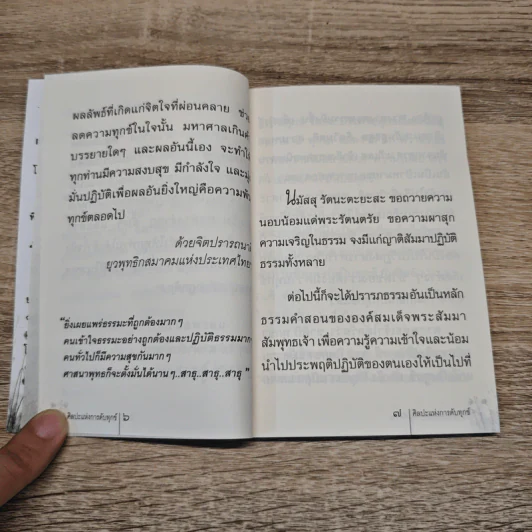 ผลลัพธ์ที่เกิดแก่จิตใจที่ผ่อนคลาย
ลดความทุกข์ในใจนั้น มหาศาลเกินคำ
บรรยายใดๆ และผลอันนี้เอง จะทำให้
ทุกท่านมีความสงบสุข มีกำลังใจ และ
มั่นปฏิบัติเพื่อผลอันยิ่งใหญ่คือความพ้น
ทุกข์ตลอดไป
ด้วยจิตปรารถนา
ยุวพุทธิกสมาคมแห่งประเทศไทย
"ยิ่งเผยแพร่ธรรมะที่ถูกต้องมาก ๆ
คนเข้าใจธรรมะอย่างถูกต้องและปฏิบัติธรรมมาก
คนทั่วไปก็มีความสุขกันมาก ๆ
ศาสนาพุทธก็จะตั้งมั่นได้นาน ๆ..สาธุ..สาธุ..สาธุ "
ศิลปะแห่งการดับทุกข์ ๖
นมัสสุ รัตนะตะยะสะ ขอถวายความ
นอบน้อมแด่พระรัตนตรัย ขอความผาสุก
ความเจริญในธรรม จงมีแก่ญาติสัมมาปฏิบัติ
ธรรมทั้งหลาย
ต่อไปนี้ก็จะได้ปรารภธรรมอันเป็นหลัก
ธรรมคำสอนขององค์สมเด็จพระสัมมา
สัมพุทธเจ้า เพื่อความรู้ความเข้าใจและน้อม
นำไปประพฤติปฏิบัติของตนเองให้เป็นไปที่
๗ ศิลปะแห่งการดับทุกข์